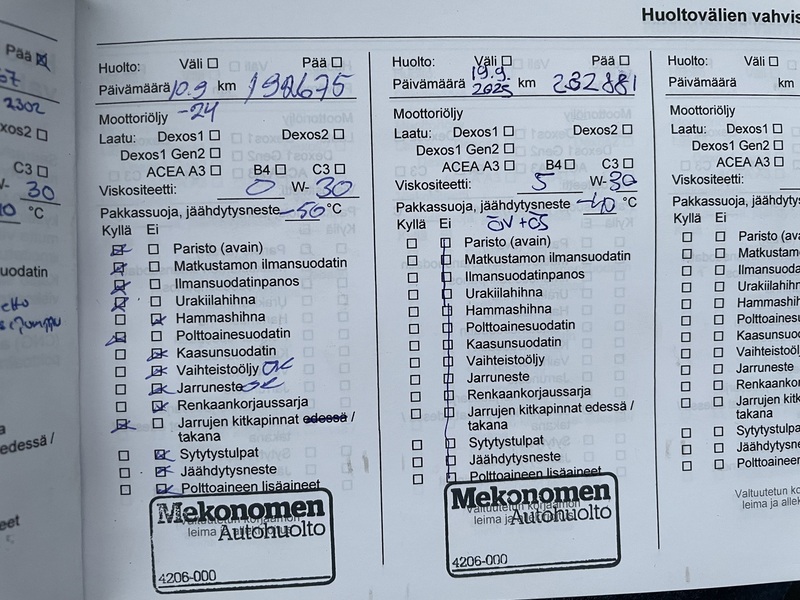 Huoltovälien vahvis
Pää
2302
xos2
C3
W- 30
°C
uodatin
edessä /
Huolto: Väli Pää
Päivämäärä 10.9 -24 km 198675
Moottoriöljy
Laatu: Dexos1 Dexos2
Dexos1 Gen2
ACEA A3 B4 C3
Viskositeetti: 0 W- 30
Pakkassuoja, jäähdytysneste -50 °C
Kyllä Ei
Paristo (avain)
Matkustamon ilmansuodatin
Ilmansuodatinpanos
Urakiilahihna
Hammashihna
Polttoainesuodatin
Kaasunsuodatin
Vaihteistoöljy OK
Jarruneste OK
Renkaankorjaussarja
Jarrujen kitkapinnat edessä /
takana
Sytytystulpat
Jäähdytysneste
Polttoaineen lisäaineet
Valtuutetun korjaamon
leima ja
Mekonomen
Autohuolto
4206-000
Huolto: Väli Pää
Päivämäärä 19.9. 2025 km 232881
Moottoriöljy
Laatu: Dexos1 Dexos2
Dexos1 Gen2
ACEA A3 B4 C3
Viskositeetti: 5 W- 30
Pakkassuoja, jäähdytysneste -40 °C
Kyllä Ei ÖV + ÖS
Paristo (avain)
Matkustamon ilmansuodatin
Ilmansuodatinpanos
Urakiilahihna
Hammashihna
Polttoainesuodatin
Kaasunsuodatin
Vaihteistoöljy
Jarruneste
Renkaankorjaussarja
Jarrujen kitkapinnat edessä /
takana
Sytytystulpat
Jäähdytysneste
Polttoaineen lisäaineet
Valtuutetun korjaamon
leima ja
Mekonomen
Autohuolto
4206-000
Huolto: Väli
Päivämäärä km
Moottoriöljy
Laatu: Dexos1
Dexos1 Gen2
ACEA A3
Viskositeetti:
Pakkassuoja, jäähdytysnes
Kyllä Ei
Paristo (ava
Matkustamo
Ilmansuodat
Urakiilahihn
Hammashih
Polttoainesu
Kaasunsuod
Vaihteistoölj
Jarruneste
Renkaankor
Jarrujen kitk
takana
Sytytystulpa
Jäähdytysne
Polttoaineen
Valtuutetun ko
leima ja allek